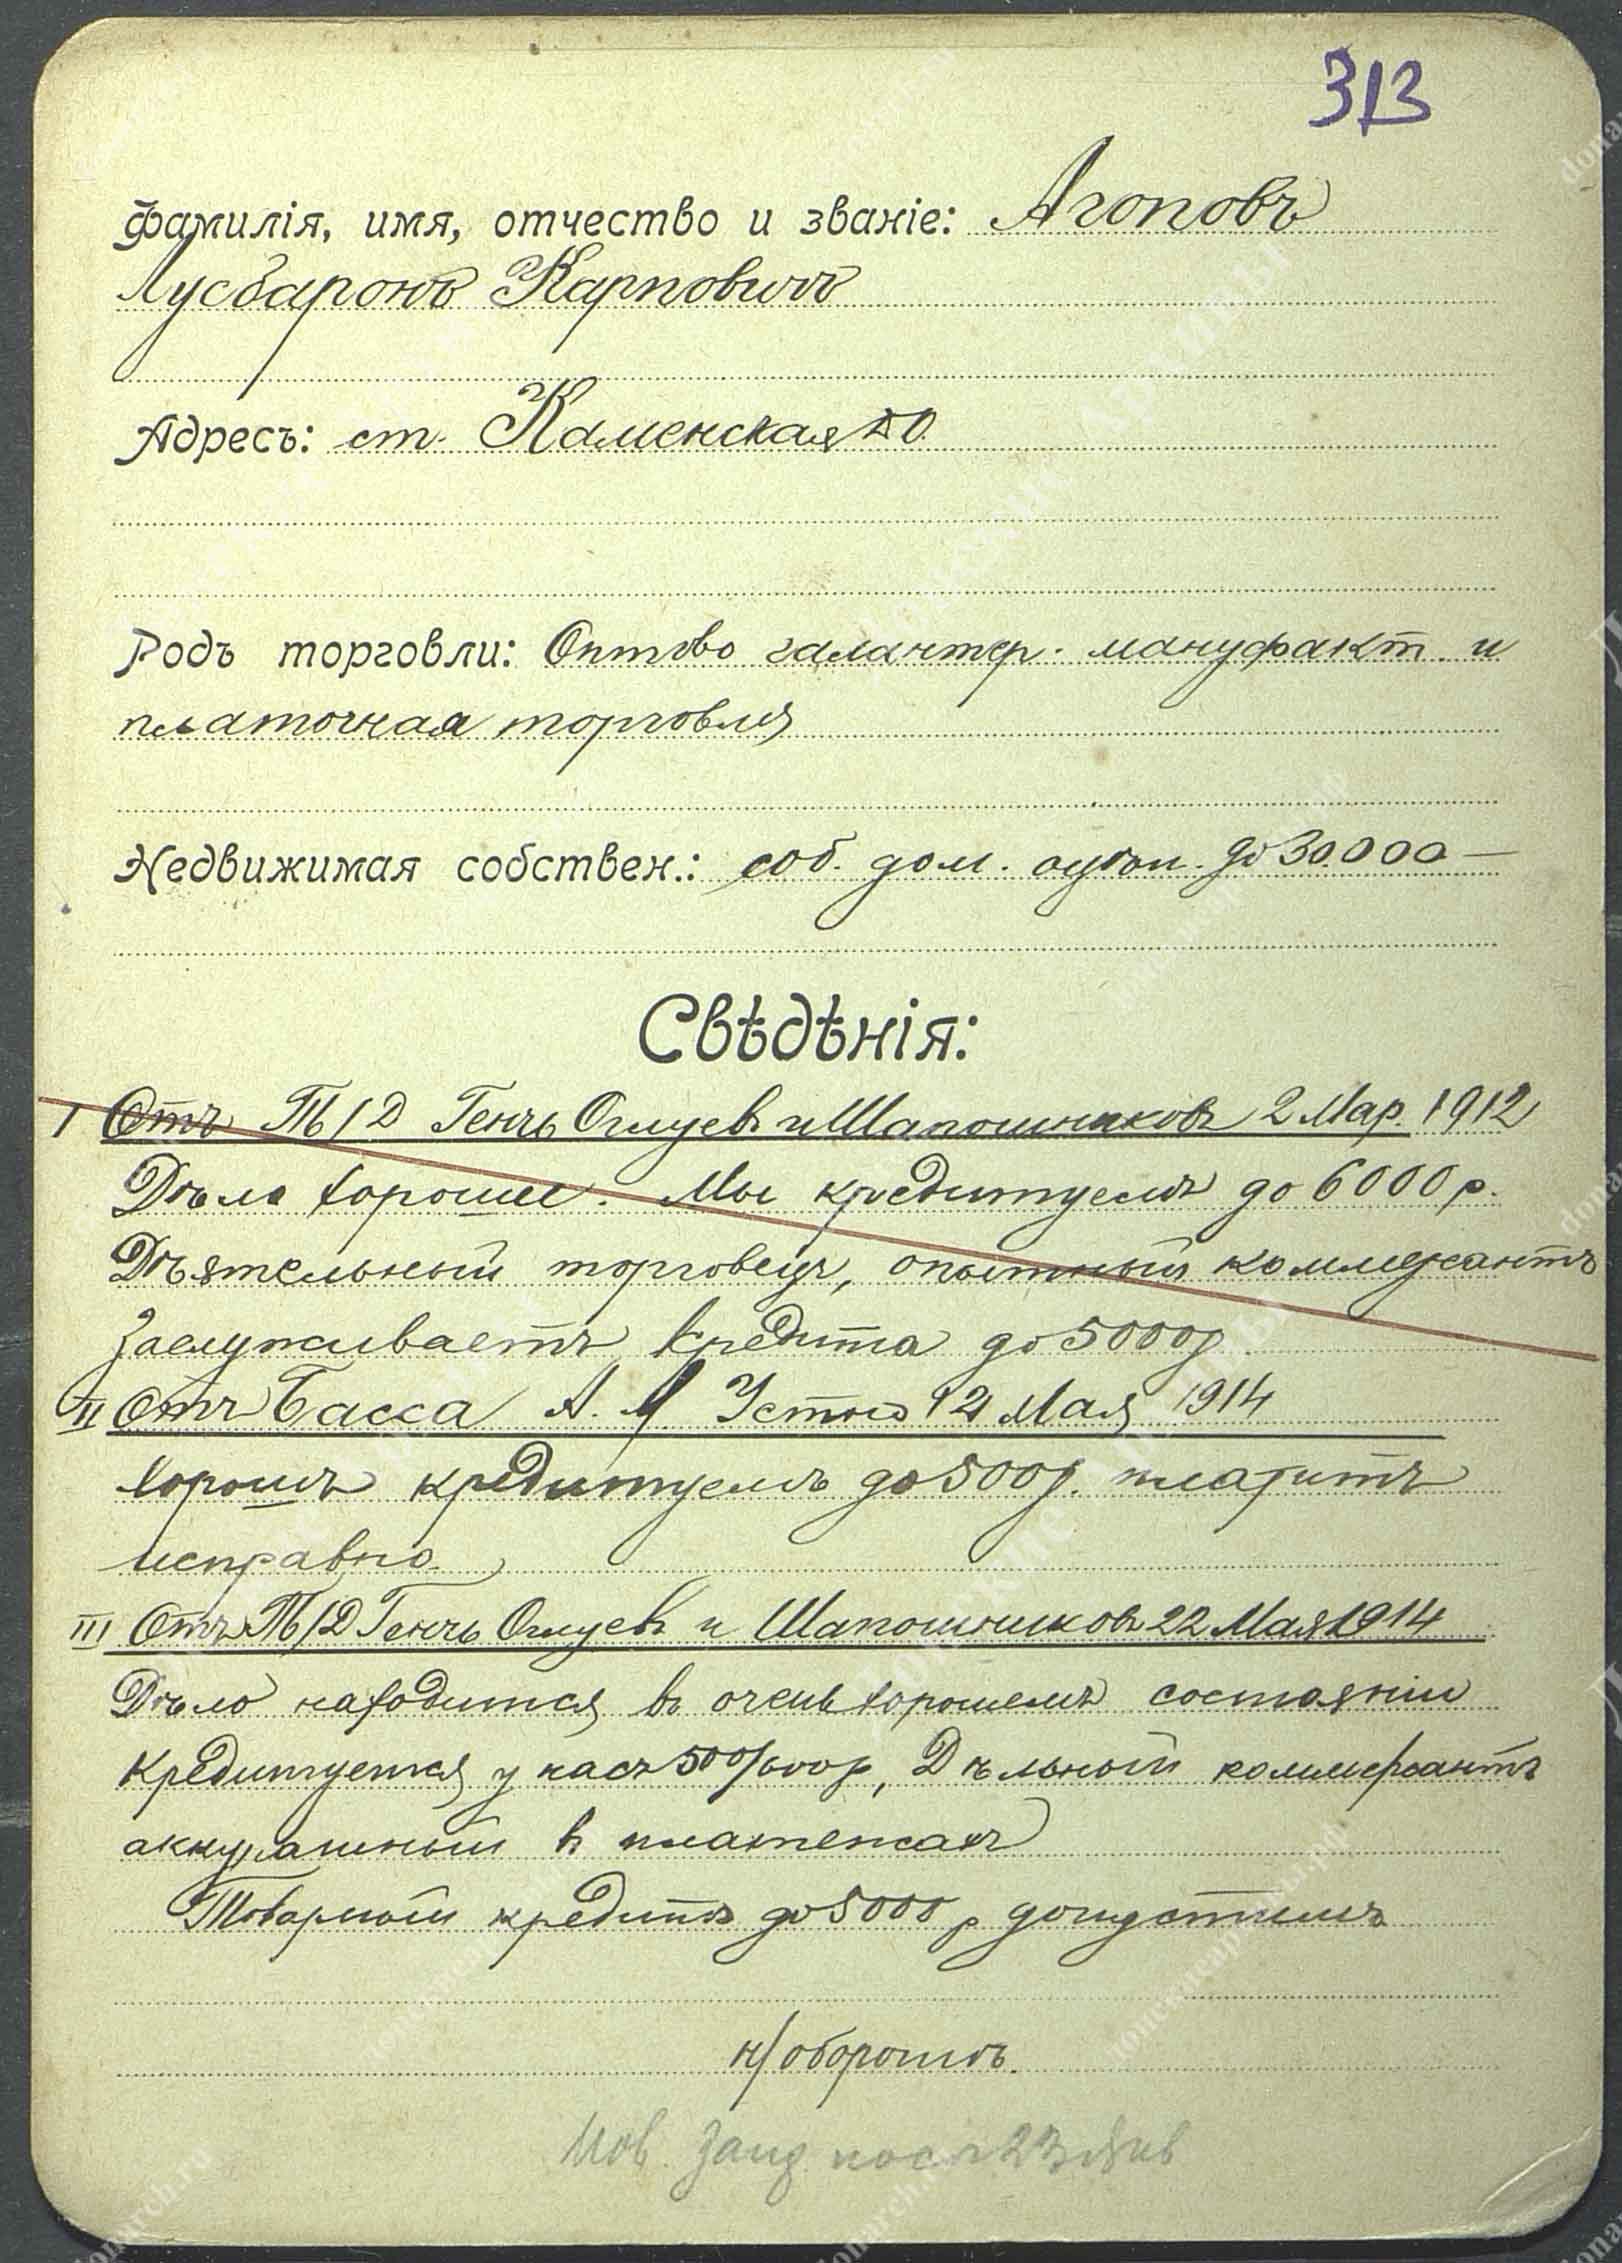 313
Фамилія, имя, отчество и званіе: Агоповъ
Лусбаронъ Карповичъ
Адресъ: ст. Каменская ДО.
Родъ торговли: Оптово галантер. мануфакт. и
платочная торговля
Недвижимая собствен.: соб. дом. оцѣн. до 30.000 —
Свѣдѣнія:
I Отъ Т/Д Генчъ Оглуевъ и Шапошниковъ 2 Мар. 1912
Дѣла хорошіе. Мы кредитуемъ до 6000 р.
Дѣятельный торговецъ, опытный коммерсантъ
Заслуживаетъ кредита до 5000 р.
II Отъ Басса А. М. Устно 12 Мая 1914
хорошъ кредитуемъ до 500 р. платитъ
исправно.
III Отъ Т/Д Генчъ Оглуевъ и Шапошниковъ 22 Мая 1914
Дѣло находится въ очень хорошемъ состояніи
Кредитуется у насъ 500/600 р, Дѣльный коммерсантъ
аккуратный въ платежахъ
Товарный кредитъ до 5000 р допустимъ
н/оборотъ.